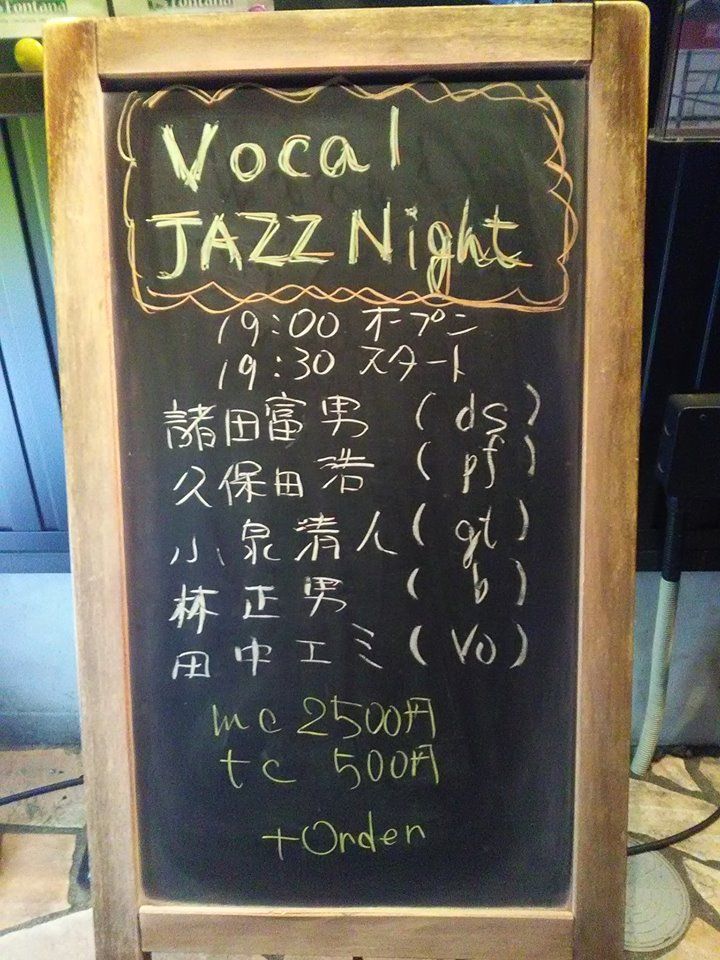 Fontana
Fontana
Vocal
JAZZ Night
19:00 オープン
19:30 スタート
諸田富男 (ds)
久保田浩 (pf)
小泉清人 (gt)
林正男 (b)
田中エミ (Vo)
mc 2500円
tc 500円
+Orden